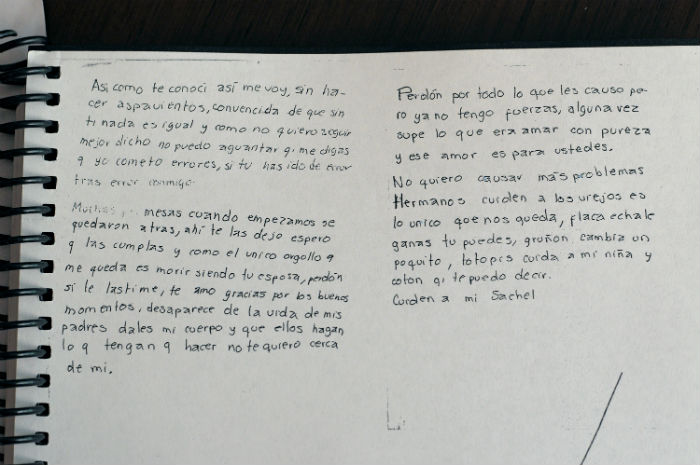 Asi como te conoci así me voy, sin ha-
cer aspavientos, convencida de que sin
ti nada es igual y como no quiero seguir
mejor dicho no puedo aguantar q. me digas
q yo cometo errores, si tu has ido de error
tras error conmigo.
mesas cuando empezamos se
quedaron atras, ahí te las dejo espero
q las cumplas y como el unico orgullo q
me queda es morir siendo tu esposa, perdón
si te lastime, te amo gracias por los buenos
momentos, desaparece de la vida de mis
padres dales mi cuerpo y que ellos hagan
lo q tengan q hacer no te quiero cerca
de mi.
Perdón por todo lo que les causo pe-
ro ya no tengo fuerzas, alguna vez
supe lo que era amar con pureza
y ese amor es para ustedes.
No quiero causar más problemas
Hermanos cuiden a los viejos es
lo unico que nos queda, flaca echale
ganas tu puedes, gruñon cambia un
poquito, totopis cuida a mi niña y
colon q. te puedo decir.
Cuiden a mi Sachel